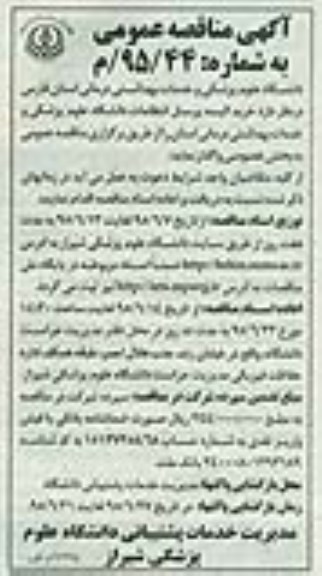 آگهی مناقصه عمومی
به شماره: ۹۵/۴۴/م
دانشگاه علوم پزشکی و خدمات بهداشتی درمانی استان فارس
در نظر دارد خرید البسه پرسنل انتظامات دانشگاه علوم پزشکی و
خدمات بهداشتی درمانی استان را از طریق برگزاری مناقصه عمومی
به بخش خصوصی واگذار نماید.
از کلیه متقاضیان واجد شرایط دعوت به عمل می آید در زمانهای
ذکر شده نسبت به دریافت و اعاده اسناد مناقصه اقدام نمایند.
توزیع اسناد مناقصه: از تاریخ ۹۸/۶/۷ لغایت ۹۸/۶/۱۳ به مدت
هفت روز از طریق سایت دانشگاه علوم پزشکی شیراز به آدرس
اسناد مربوطه در پایگاه ملی
مناقصات به آدرس نیز ثبت می گردد.
اعاده اسناد مناقصه: از تاریخ ۹۸/۶/۱۴ لغایت ساعت ۱۴:۳۰
مورخ ۹۸/۶/۲۳ به مدت ده روز در محل دفتر مدیریت حراست
دانشگاه واقع در خیابان زند، جنب هلال احمر، طبقه همکف اداره
حفاظت فیزیکی مدیریت حراست دانشگاه علوم پزشکی شیراز
مبلغ تضمین سپرده شرکت در مناقصه: سپرده شرکت در مناقصه
به مبلغ ریال بصورت ضمانتنامه بانکی یا فیش
واریز نقدی به شماره حساب به کد شناسه
بانک ملت
محل بازگشایی پاکتها: مدیریت خدمات پشتیبانی دانشگاه
زمان بازگشایی پاکتها: از تاریخ ۹۸/۶/۲۵ لغایت ۹۸/۶/۳۱
مدیریت خدمات پشتیبانی دانشگاه علوم
پزشکی شیراز